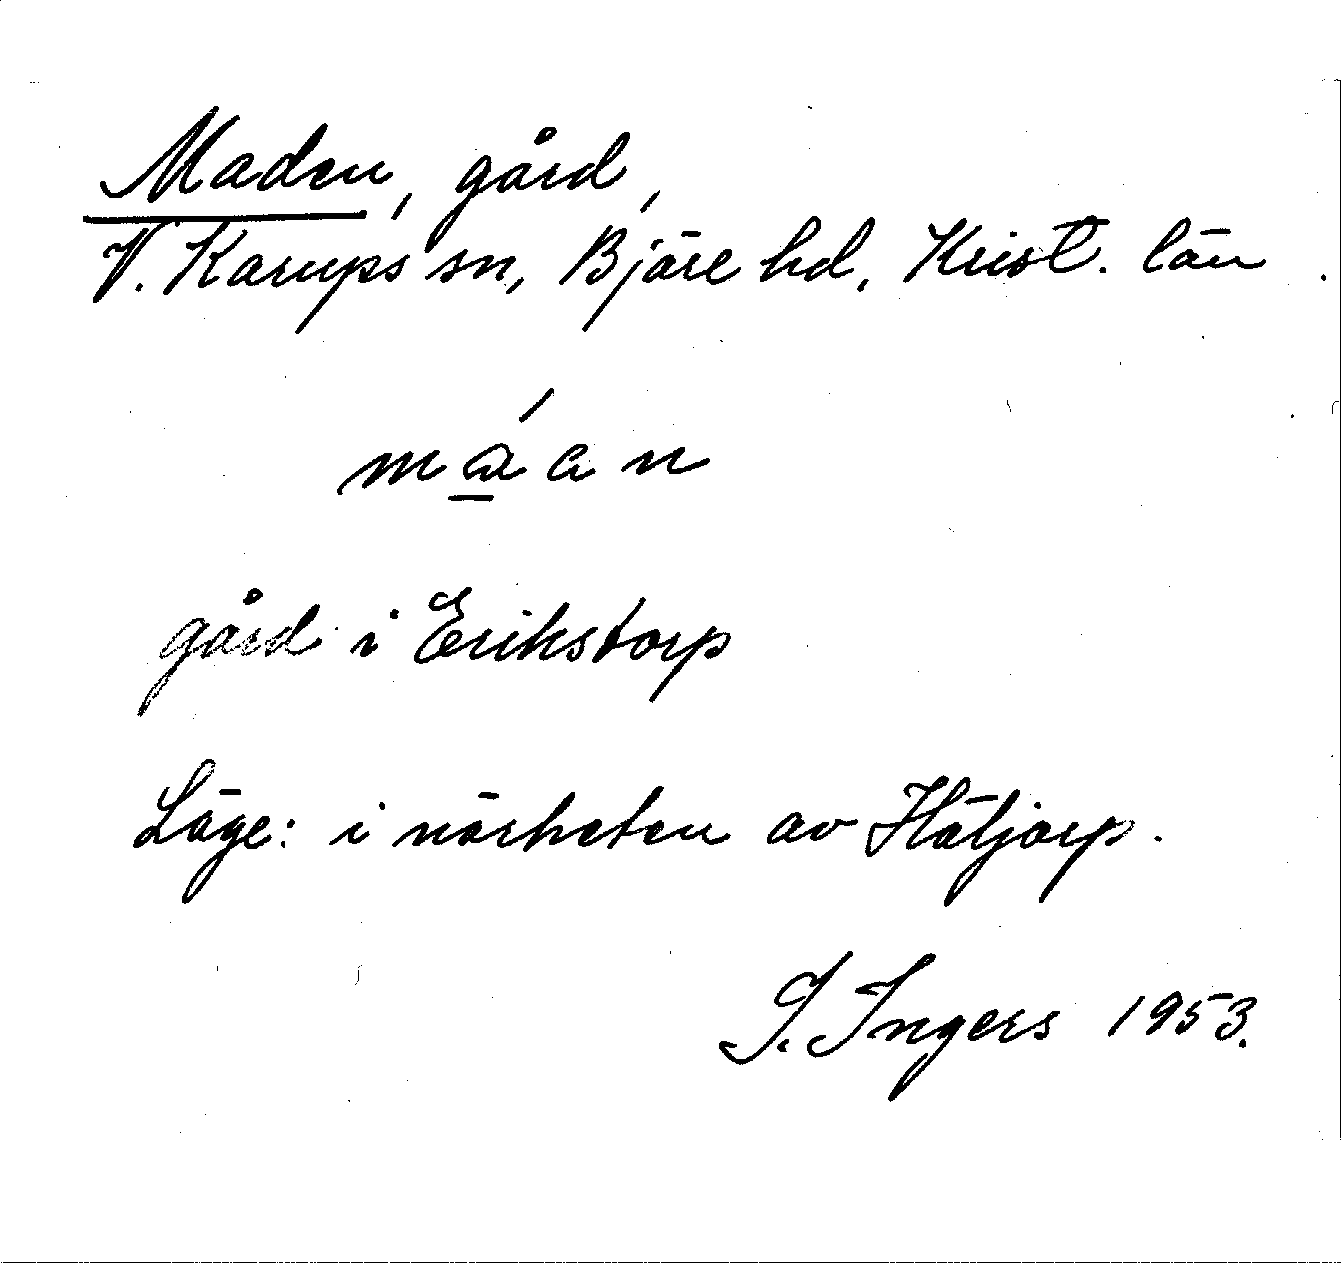 Maden, gård,
V. Karups sn, Bjäre hd, Krist. län.
gård i Erikstorp
Läge: i närheten av Häljarp.
I. Ingers 1953.